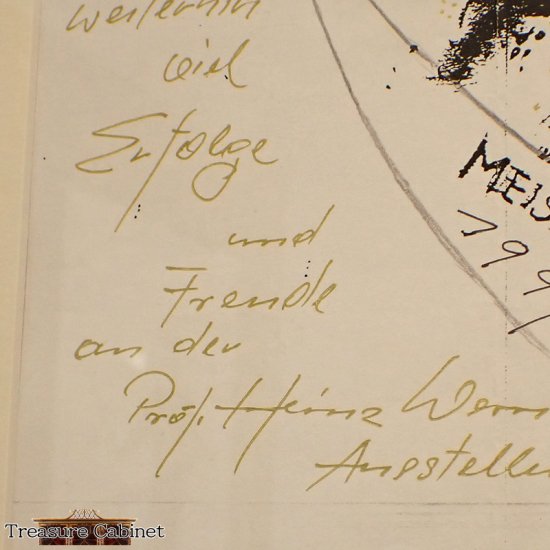 weiterhin
viel
Erfolge
und
Freude
an der
Prof. Heinz Wern
Ausstellun
MEIS
199
Treasure Cabinet